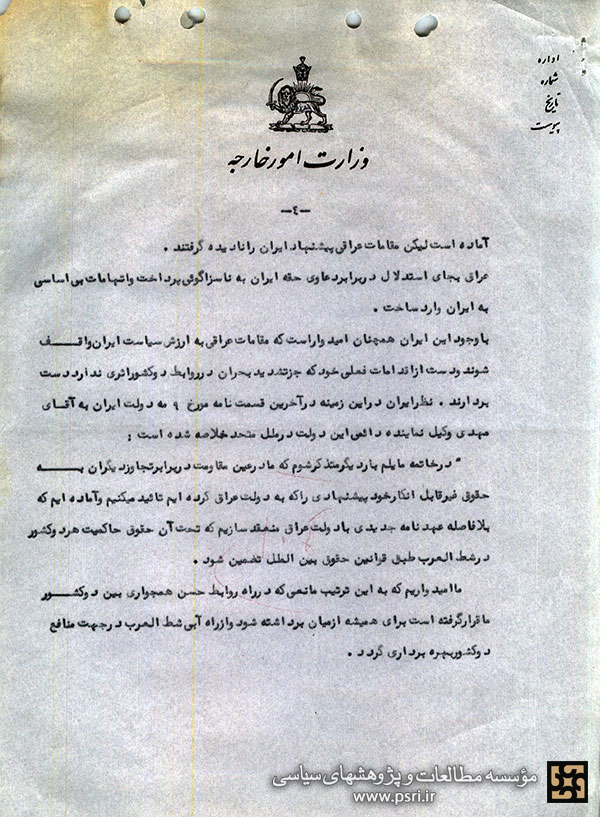 اداره
شماره
تاریخ
پیوست
وزارت امورخارجه
-٤-
آماده است لیکن مقامات عراقی پیشنهاد ایران را نادیده گرفتند .
عراق بجای استدلال در برابر دعاوی حقه ایران به ناسزاگوئی پرداخت واتهامات بی اساسی
به ایران وارد ساخت .
با وجود این ایران همچنان امیدوار است که مقامات عراقی به ارزش سیاست ایران واقف
شوند ودست از اقدامات فعلی خود که جز تشدید بحران در روابط دو کشور اثری ندارد دست
بردارند . نظر ایران در این زمینه در آخرین قسمت نامه مورخ ۹ مه دولت ایران به آقای
مهدی وکیل نماینده دائمی این دولت در ملل متحد خلاصه شده است :
" در خاتمه مایلم بار دیگر متذکر شوم که ما در عین مقاومت در برابر تجاوز دیگران به
حقوق غیر قابل انکار خود پیشنهادی را که به دولت عراق کرده ایم تائید میکنیم وآماده ایم که
بلافاصله عهد نامه جدیدی با دولت عراق منعقد سازیم که تحت آن حقوق حاکمیت هر دو کشور
در شط العرب طبق قوانین حقوق بین الملل تضمین شود .
ما امیدواریم که به این ترتیب مانعی که در راه روابط حسن همجواری بین دو کشور
ما قرار گرفته است برای همیشه از میان برداشته شود واز راه آبی شط العرب در جهت منافع
دو کشور بهره برداری گردد .
مؤسسه مطالعات و پژوهشهای سیاسی
www.psri.ir